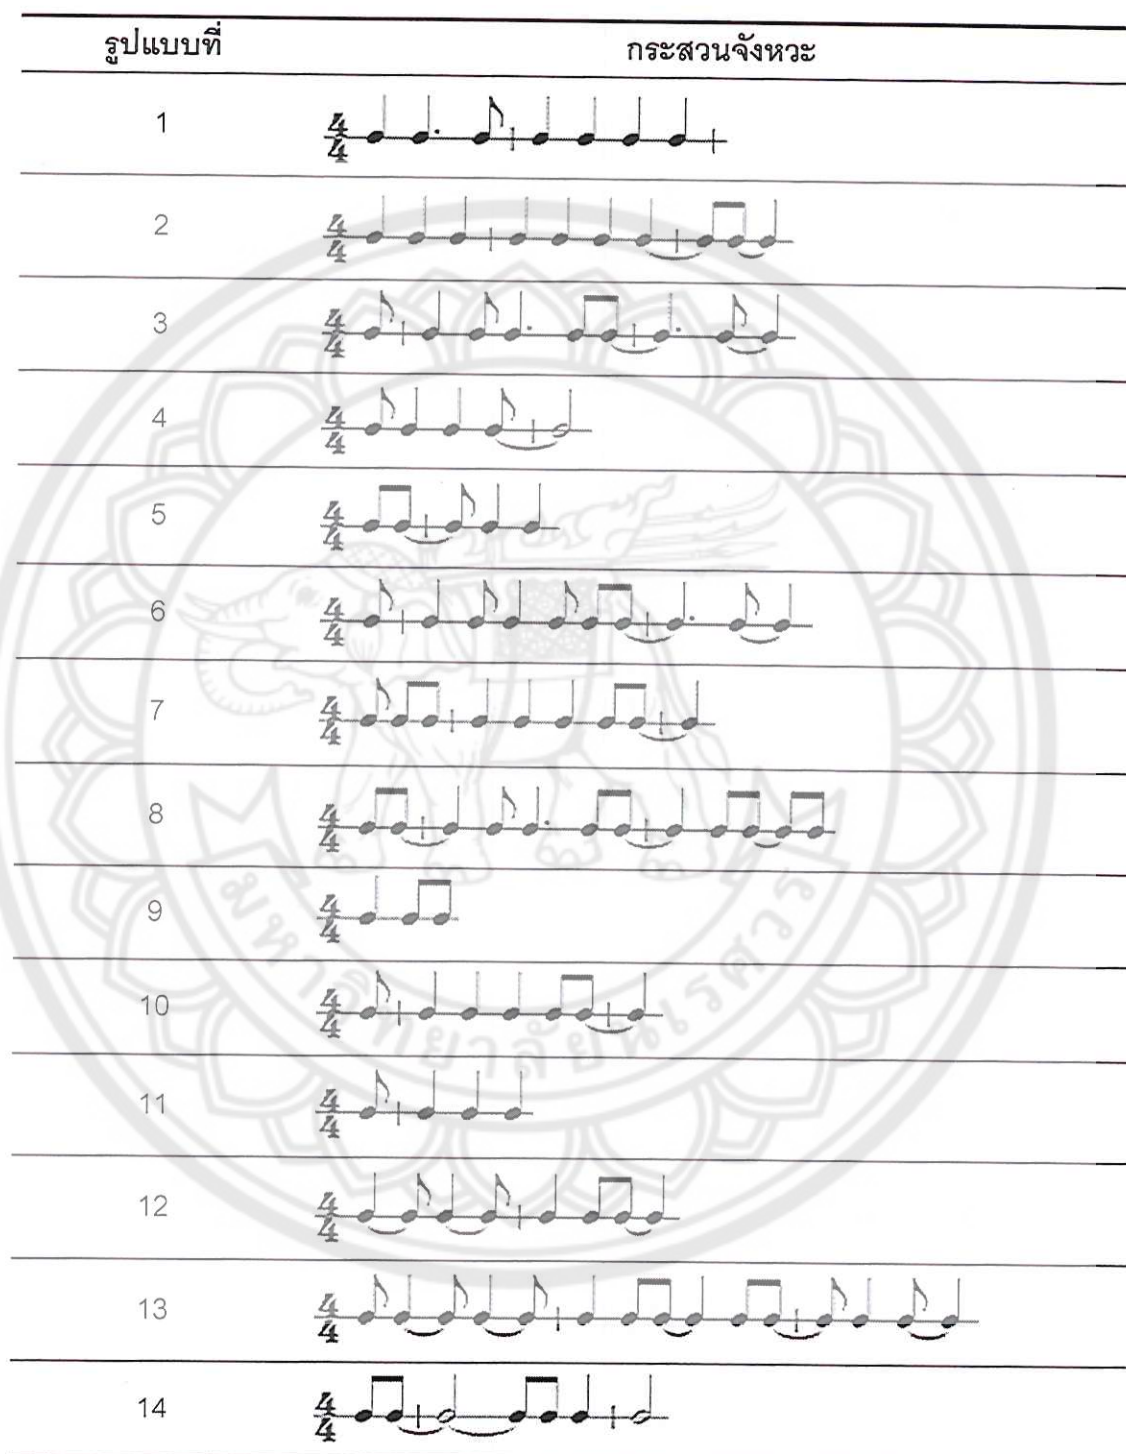 รูปแบบที่ กระสวนจังหวะ
1 4/4
2 4/4
3 4/4
4 4/4
5 4/4
6 4/4
7 4/4
8 4/4
9 4/4
10 4/4
11 4/4
12 4/4
13 4/4
14 4/4
มหาวิทยาลัยนเรศวร